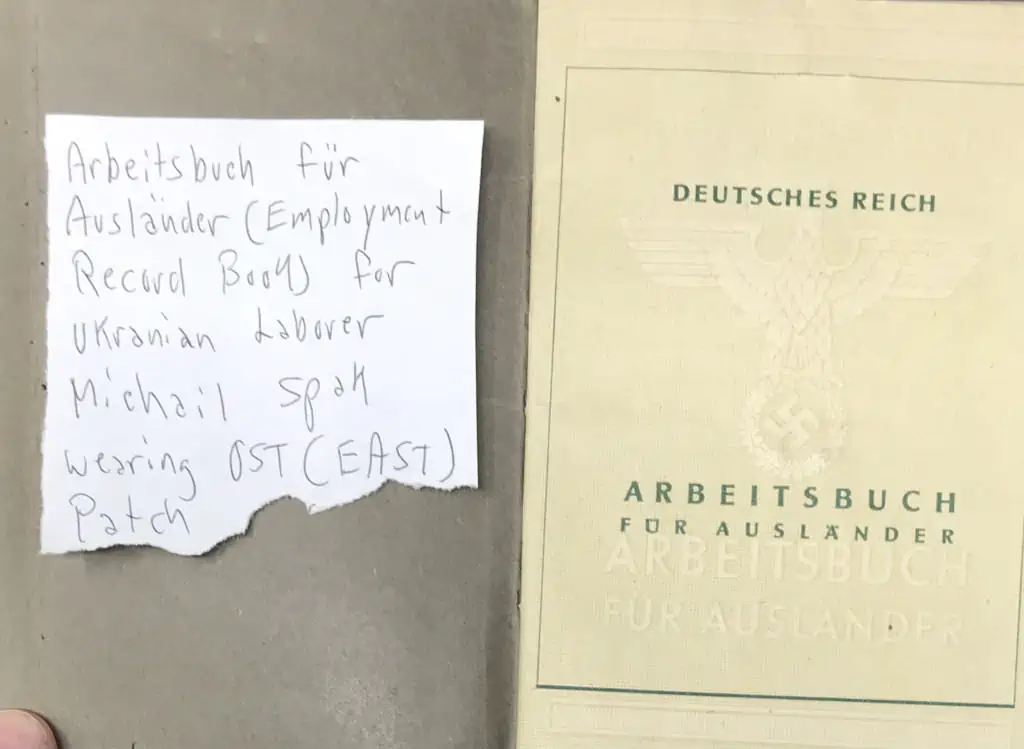 Arbeitsbuch für
Ausländer (Employment
Record Book) for
Ukranian Laborer
Michail Spak
wearing OST (EAST)
Patch
DEUTSCHES REICH
ARBEITSBUCH
FÜR AUSLÄNDER
ARBEITSBUCH
FÜR AUSLÄNDER